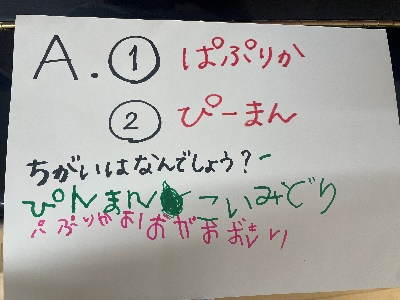 A. ① ぱぷりか
② ぴーまん
ちがいはなんでしょう?
ぴんまん こいみどり
ぱぷりかより おがおおきい